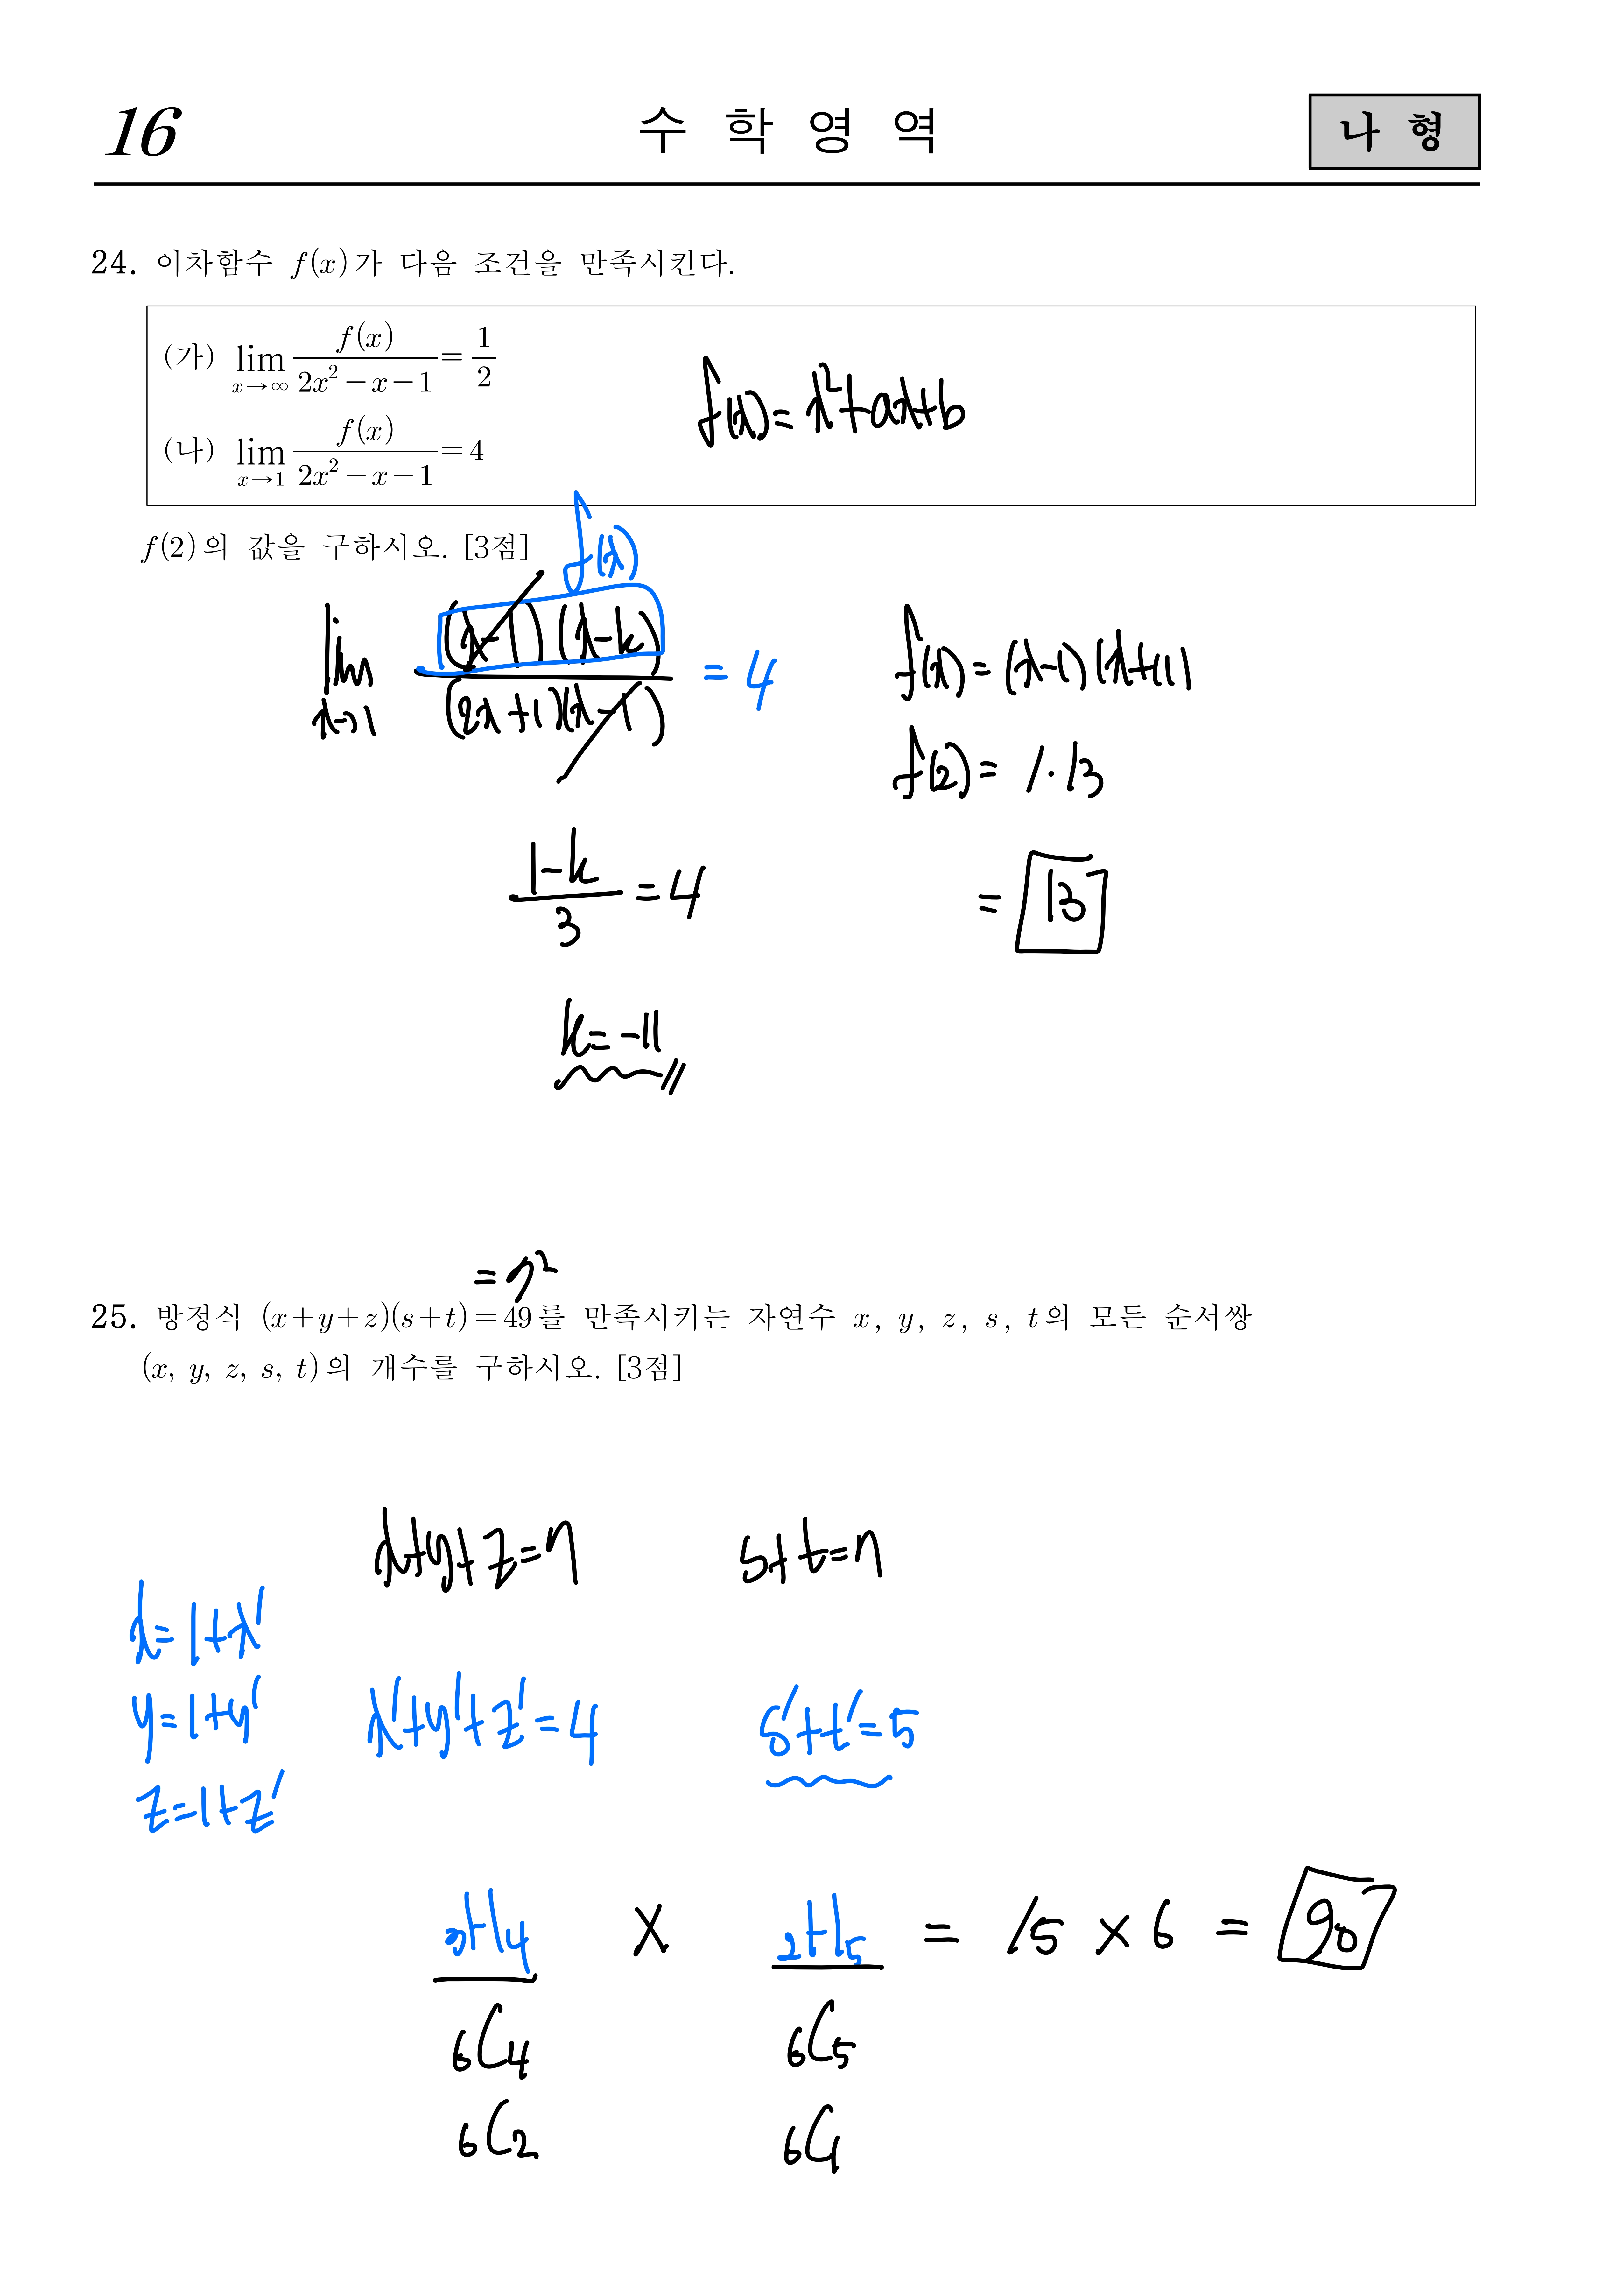 16 수 학 영 역 나 형
24. 이차함수 f(x)가 다음 조건을 만족시킨다.
(가) lim_{x→∞} f(x)/(2x²-x-1) = 1/2
f(x)=x²+ax+b
(나) lim_{x→1} f(x)/(2x²-x-1) = 4
f(2)의 값을 구하시오. [3점]
f(x)
lim_{x→1} (x-1)(x-k)/(2x+1)(x-1) = 4
(1-k)/3 = 4
k=-11
f(x)=(x-1)(x+11)
f(2)= 1·13
= 13
=7²
25. 방정식 (x+y+z)(s+t)=49를 만족시키는 자연수 x, y, z, s, t의 모든 순서쌍
(x, y, z, s, t)의 개수를 구하시오. [3점]
x+y+z=7 s+t=7
x=1+x'
y=1+y'
z=1+z'
x'+y'+z'=4 s'+t'=5
₃H₄ × ₂H₅ = 15 × 6 = 90
₆C₄ ₆C₅
₆C₂ ₆C₁